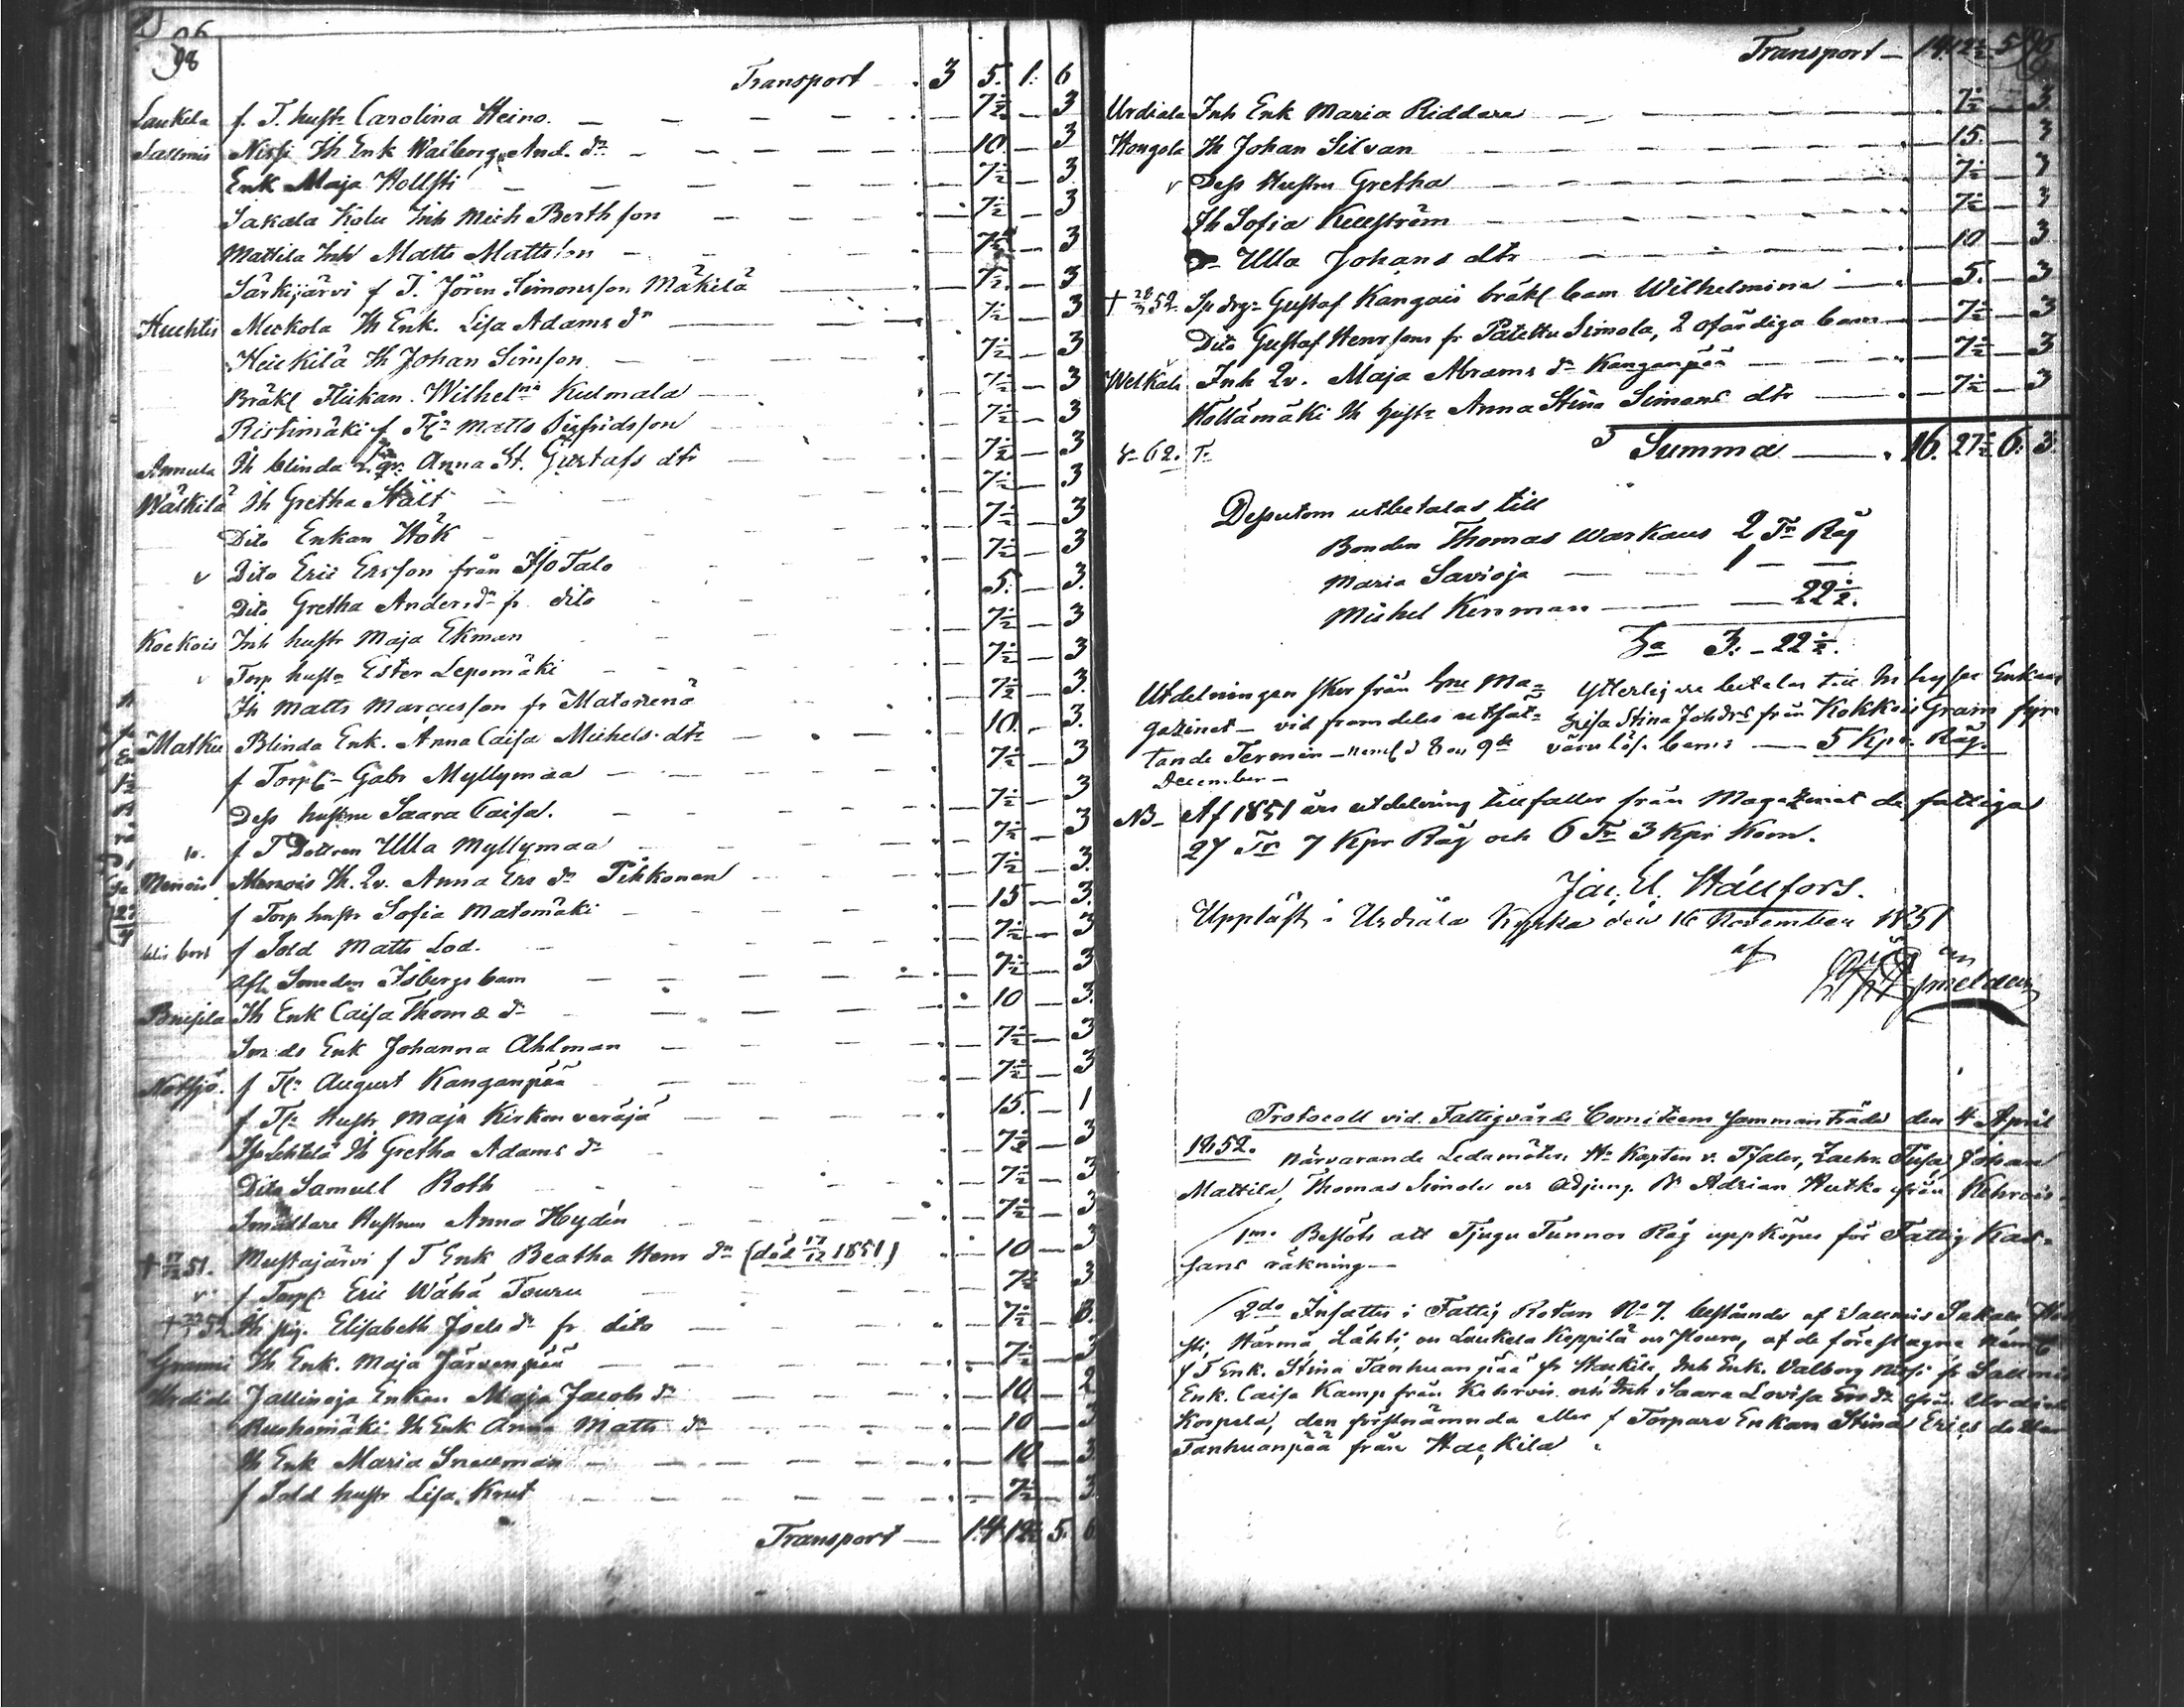 98
Transport 3 5. 1. 6
Laukela f. T. hustr Carolina Heino. 7½ 3
Salmis Nissi Ih Enk Walborg And. dr 10. 3
Enk Maja Hollsti 7½ 3
Sakala Kolu Inh Mich Berthsson 7½ 3
Mattila Inh Matts Mattsson 7½ 3
Särkijärvi f T. Jören Simonsson Mäkilä 7½ 3
Huhtis Meckola Ih Enk. Lisa Adams dr 7½ 3
Heickilä Ih Johan Simsson 7½ 3
Bräkl Flickan Wilhelna Kulmala 7½ 3
Ristimäki f Tr Matts Sigfridsson 7½ 3
Annula Ih blinda Anna St. Gustafs dtr 7½ 3
Wälkilä Ih Gretha Stält 7½ 3
Dito Enkan Hök 7½ 3
v Dito Eric Ersson från Iso Talo 7½ 3
Dito Gretha Anders dr fr dito 5. 3.
Kockois Inh hustr Maja Ekman 7½ 3
v Torp hustr Ester Lepomäki 7½ 3
Ih Matts Marcusson fr Matonenä 7½ 3.
Matku Blinda Enk. Anna Caisa Michels dtr 10. 3.
f Torp Gabr Myllymaa 7½ 3
Dess hustru Saara Caisa. 7½ 3
f T Dottren Ulla Myllymaa 7½ 3
Menois Menois Ih. Qv. Anna Ers dr Pihkonen 7½ 3.
f Torp hustr Sofia Matomäki 15 3.
f Sold Matts Lod. 7½ 3
Afl. Smeden Isbergs barn 7½ 3
Ih Enk Caisa Thomæ dr 10 3.
Enk Johanna Ahlman 7½ 3
Notsjö. f Tr August Kanganpää 7½ 3
f Tr Hustr Maja Kirkonveräjä 15. 1
Iso Lehtelä Ih Gretha Adams dr 7½ 3
Dito Samuel Roth 7½ 3
Hustrun Anna Hydén 7½ 3
† 17/12 51. Mustajärvi f T Enk Beatha Henr dr (död 17/12 1851) 10 3
v f Torp Eric Wähä Touru 7½ 3
Ih pig. Elisabeth Joels dr fr dito 7½ 3.
Ih Enk. Maja Järvenpää 7½ 3
Urdiala Jallinoja Enkan Maja Jacobs dr 10 2
Ih Enk Anna Matts dr 10 3
Ih Enk Maria Snellman 10 3.
f Sold hustr Lisa Knut 7½ 3
Transport 14 12½ 5. 6
Transport 14 12½ 5
Urdiala Inh Enk Maria Riddare 7½ 3.
Hongola Ih Johan Silvan 15. 3
v Dess Hustru Gretha 7½ 3
Ih Sofia Kullström 7½ 3
Dr Ulla Johans dtr 10 3.
† 28/3 52. Gustaf Kangais bräkl barn Wilhelmina 5. 3
Dito Gustaf Henrsson fr Palettu Simola, 2 ofärdiga barn 7½ 3
Welkala Inh Qv. Maja Abrams dr Kanganpää 7½ 3
Kollämäki Ih hustr Anna Stina Simons dtr 7½ 3
Summa 16. 27½ 6. 3.
Deputom utbetalas till
Bonden Thomas Warkaus 2 Tr Råg
Maria Savioja 1
Michel Kenman 22½.
Sa 3. 22½.
Utdelningen sker från Sne Ma=
gazinet vid framdeles utsat=
tande Termin 8 och 9de
December
Ytterligare betalas till Inhyses Enkan
Lisa Stina Johdr från Kokkois Gram fyra
värnlösa barns 5 Kpr. Råg.
NB Af 1851 års utdelning tillfaller från Magazinet de fattiga
27 Tr 7 Kpr Råg och 6 Tr 3 Kpr Korn.
Jac. El. Hällfors.
Uppläst i Urdiala Kyrka den 16 November 1851
af
Protocoll vid Fattigvårds Comiteens sammanträde den 4 April
1852. Närvarande Ledamöter Hr Kapten v. Pfaler, Zachr. Johan
Mattila, Thomas Simola och Adjung. Nr Adrian Hutko från Kehrois.
1mo Beslöts att Tjugu Tunnor Råg uppköpes för Fattig Kas=
sans räkning
2do Infattes i Fattig Rotan No 7. bestående af Salmis Sakala
Härmä, Lahti, och Laukela Keppilä och Houra, af de föreslagne
f T Enk. Stina Tanhuanpää fr Hackila, Inh Enk. Valborg Nissi fr Salmis
Enk. Caisa Kamp från Kehrois och Inh Saara Lovisa Ers dr från Urdiala
Korpela, den förstnämnda eller f Torpare Enkan Stina Erics dotter
Tanhuanpää från Hackila